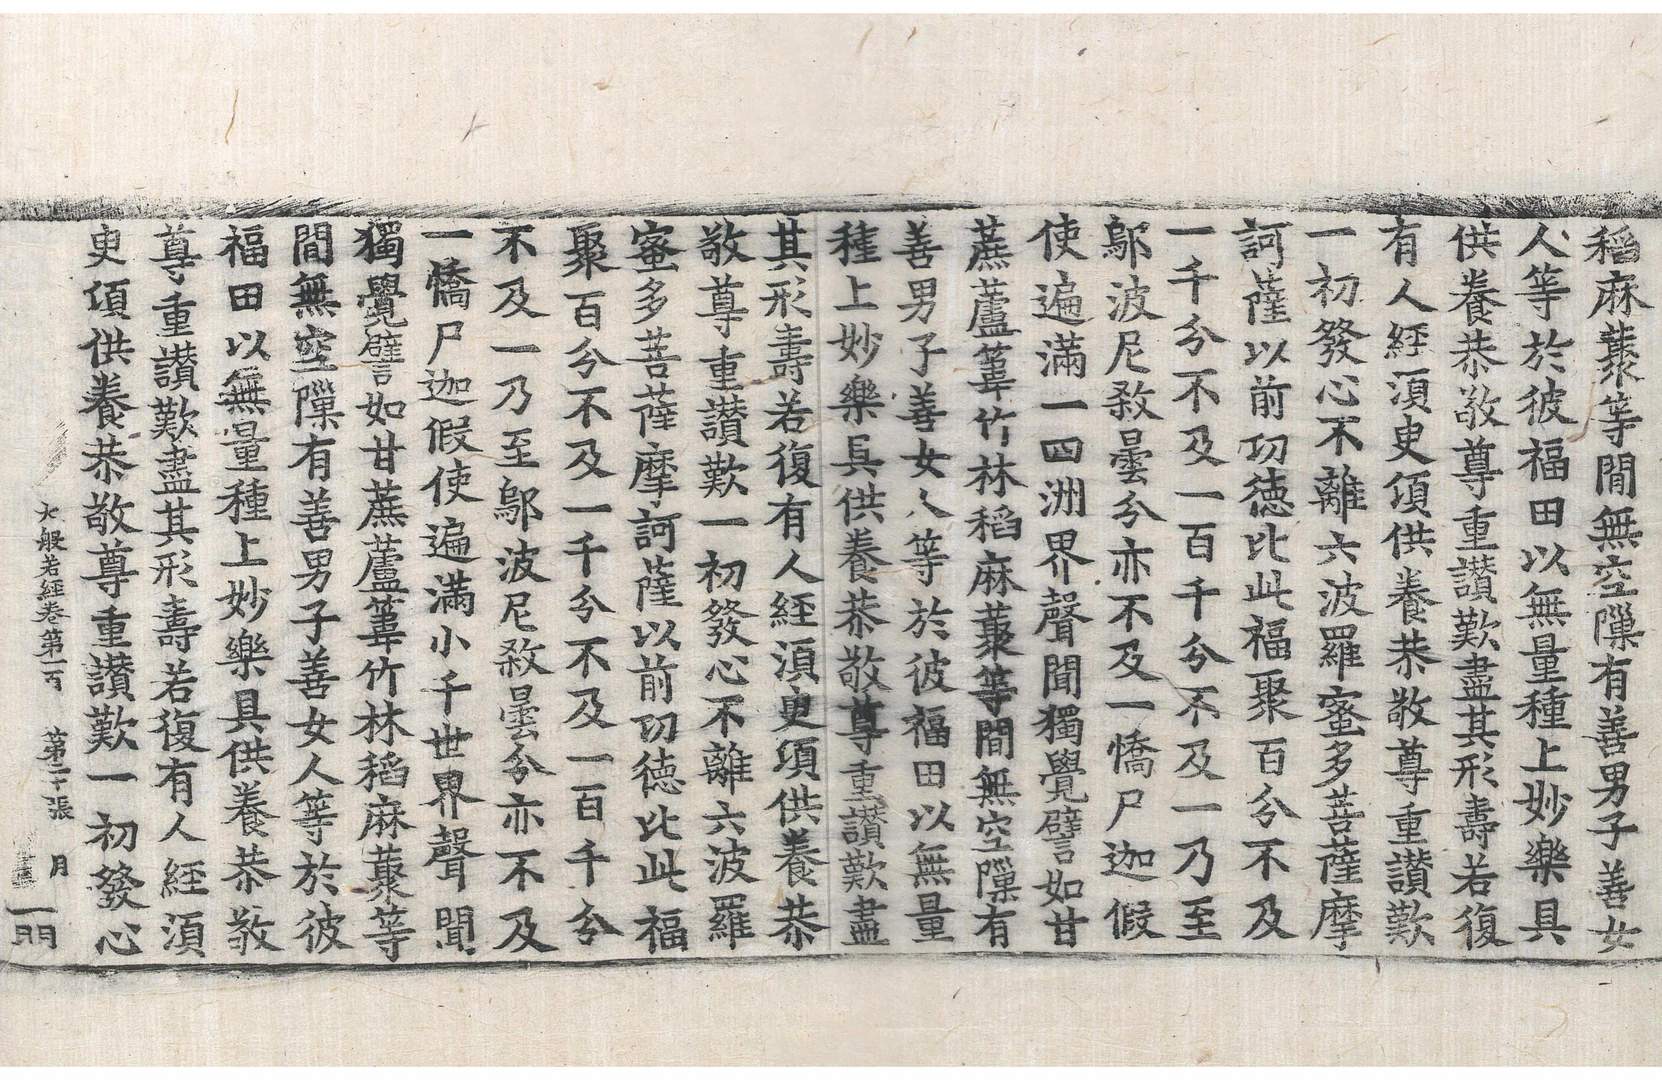 稻麻藂等間無空隟有善男子善女
人等於彼福田以無量種上妙樂具
供養恭敬尊重讃歎盡其形壽若復
有人經湏臾頃供養恭敬尊重讃歎
一初發心不離六波羅蜜多菩薩摩
訶薩以前功徳比此福聚百分不及
一千分不及一百千分不及一乃至
鄔波尼煞曇分亦不及一憍尸迦假
使遍滿一四洲界聲聞獨覺譬如甘
蔗蘆葦竹林稻麻藂等間無空隟有
善男子善女人等於彼福田以無量
種上妙樂具供養恭敬尊重讃歎盡
其形壽若復有人經湏臾頃供養恭
敬尊重讃歎一初發心不離六波羅
蜜多菩薩摩訶薩以前功徳比此福
聚百分不及一千分不及一百千分
不及一乃至鄔波尼煞曇分亦不及
一憍尸迦假使遍滿小千世界聲聞
獨覺譬如甘蔗蘆葦竹林稻麻藂等
間無空隟有善男子善女人等於彼
福田以無量種上妙樂具供養恭敬
尊重讃歎盡其形壽若復有人經湏
臾頃供養恭敬尊重讃歎一初發心
大般若經卷第一百 第二十張 月